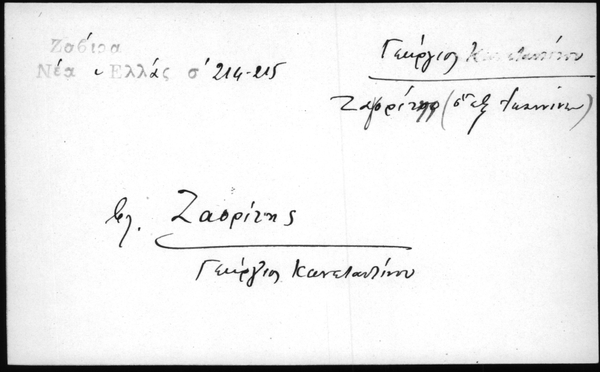 Ζαβίρα
Νέα Ἑλλάς σ' 214-215
Γεώργιος Κωνσταντίνου
Ζαορίτης (ὁ ἐξ Ἰωαννίνων)
βλ. Ζαορίτης
Γεώργιος Κωνσταντίνου